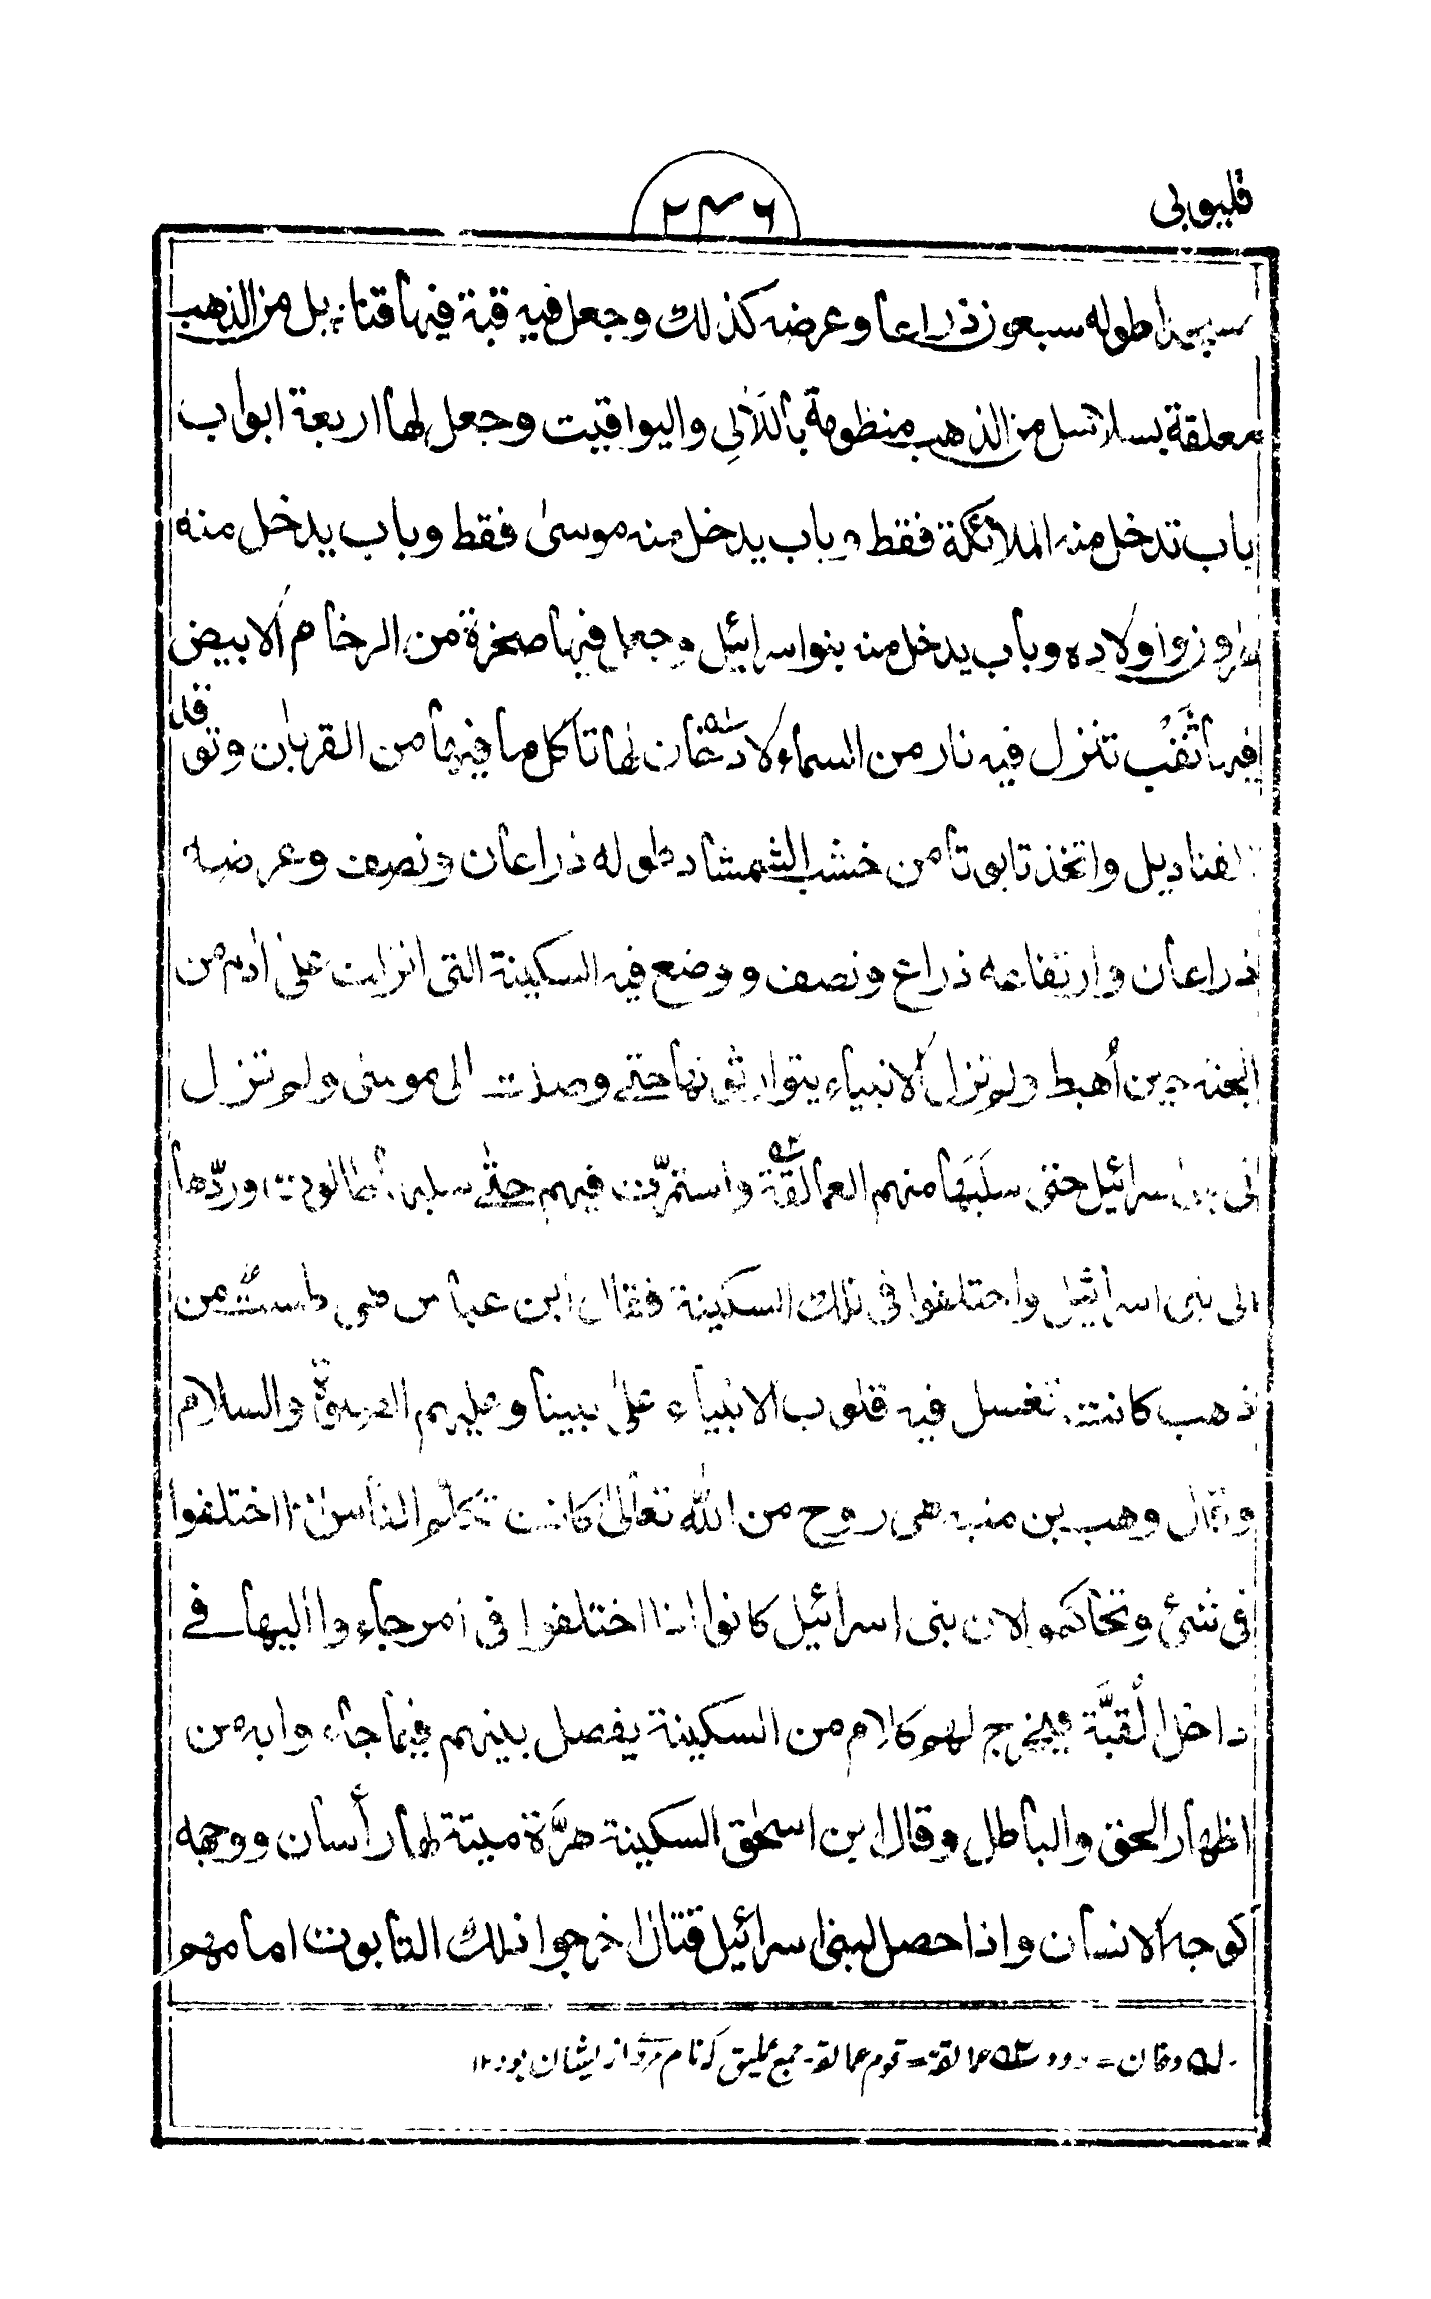 قليوبى
٢٣٦
مسجدا طوله سبعون ذراعا وعرضه كذلك وجعل فيه قبة فيها قناديل من الذهب
معلقة بسلاسل من الذهب منظومة باللآلِي واليواقيت وجعل لها اربعة ابواب
باب تدخل منه الملائكة فقط وباب يدخل منه موسىٰ فقط وباب يدخل منه
هٰرون واولاده وباب يدخل منه بنواسرائيل وجعل فيها صخرة من الرخام الابيض
فيها ثَقُب تنزل فيه نار من السماء لا دخان لها تاكل ما فيها من القربان وتوقد
القناديل واتخذ تابوتا من خشب الشمشاد طوله ذراعان ونصف وعرضه
ذراعان وارتفاعه ذراع ونصف ووضع فيه السكينة التى انزلت علىٰ اٰدم من
الجنة حين اُهبط ولم تزل الانبياء يتوارثونها حتى وصلت الى موسٰى ولم تزل
فى بنى اسرائيل حتى سلَبَها منهم العمالقة واستمرّت فيهم حتّٰى سلبها طالوت وردّها
الى بنى اسرائيل واختلفوا فى تلك السكينة فقال ابن عباس هى طست من
ذهب كانت تغسل فيه قلوب الانبياء علىٰ نبينا وعليهم الصلوة والسلام
وقال وهب بن منبه هى روح من الله تعالىٰ كانت تكلّم الناس اذا اختلفوا
فى شىء وتحاكموا لان بنى اسرائيل كانوا اذا اختلفوا فى امر جاءوا اليها فى
داخل القبَّة فيخرج لهم كلام من السكينة يفصل بينهم فيما جاءوا به من
اظهار الحق والباطل وقال ابن اسحٰق السكينة هرَّة ميتة لها رأسان ووجه
كوجه الانسان واذا حصل لبنى اسرائيل قتال اخرجوا ذلك التابوت امامهم
لـه دخان = دود ٢ـه عمالقة = قوم عمالقه جمع عمليق كه نام مردے از ايشان بود ١٢